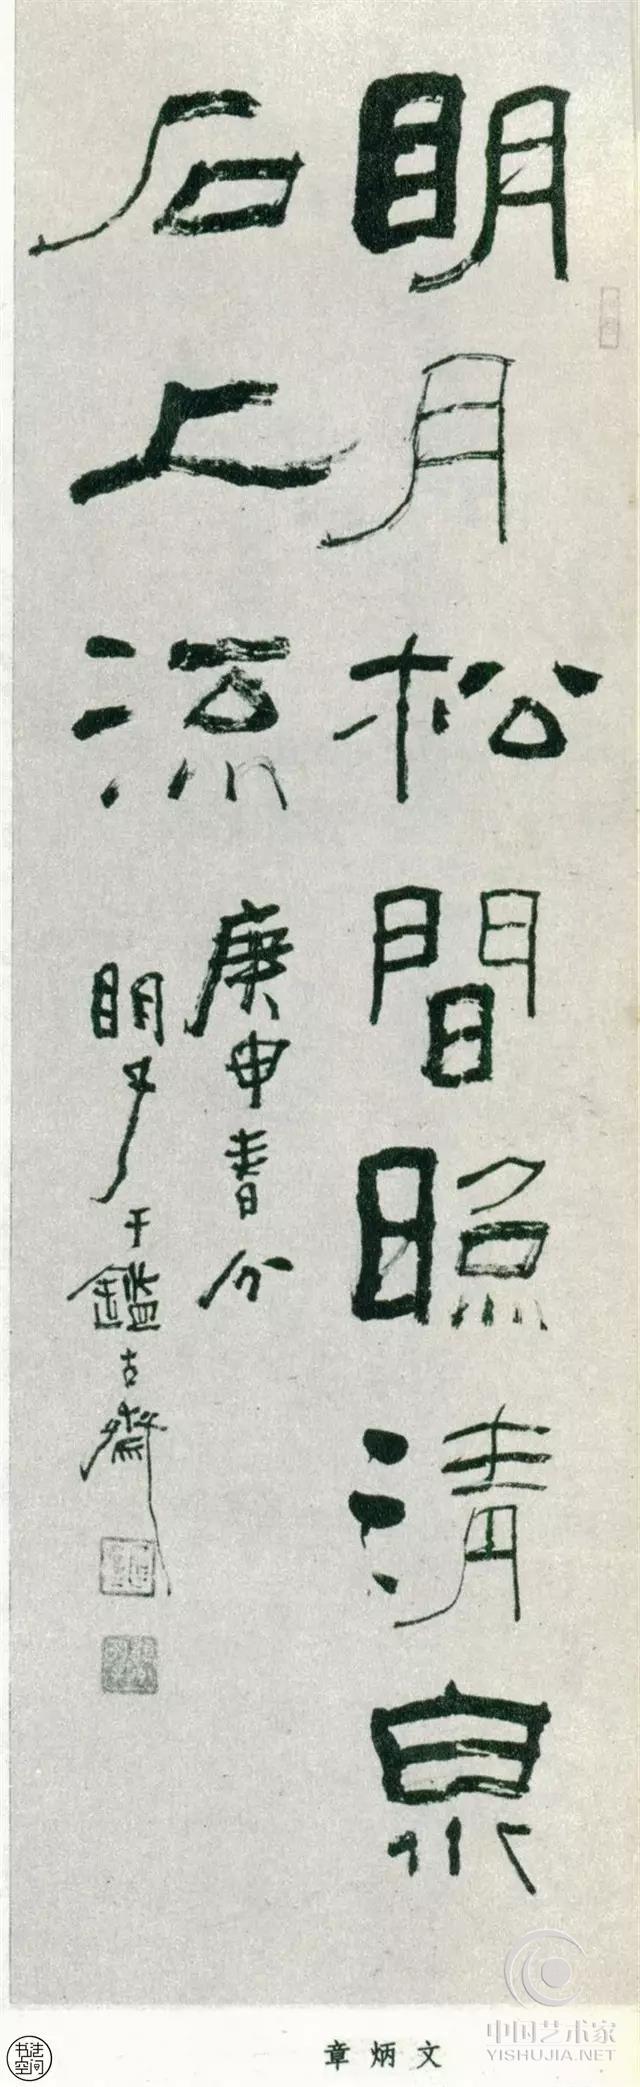 明月松間照清泉
石上流
庚申春分
明于鑑古齋
章炳文
中国艺术家
YISHUJIA.NET
书法空间